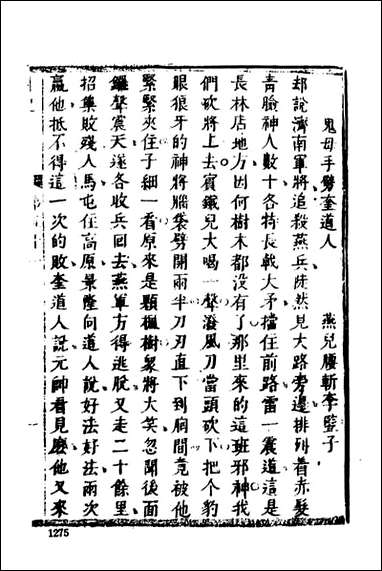 鬼母手劈奎道人　燕兒腰斬李鑒子
却說濟南軍將追殺燕兵陡然見大路旁邊排列着赤髮
青臉神人數十各持長戟大矛擋住前路雷一震道這是
長林店地方因何樹木都沒有了那里來的這班邪神我
們砍將上去賓鐵兒大喝一聲潑風刀當頭砍下把个豹
眼狼牙的神將腦袋劈開兩半刀刃直下到胸間竟被他
緊緊夾住子細一看原來是顆楓樹衆將大笑忽聞後面
鑼聲震天遂各收兵回去燕軍方得逃脫又走二十餘里
招集敗殘人馬屯住高原景隆向道人說好法好法兩次
贏他抵不得這一次的敗奎道人說元帥看見麽他又來
1275